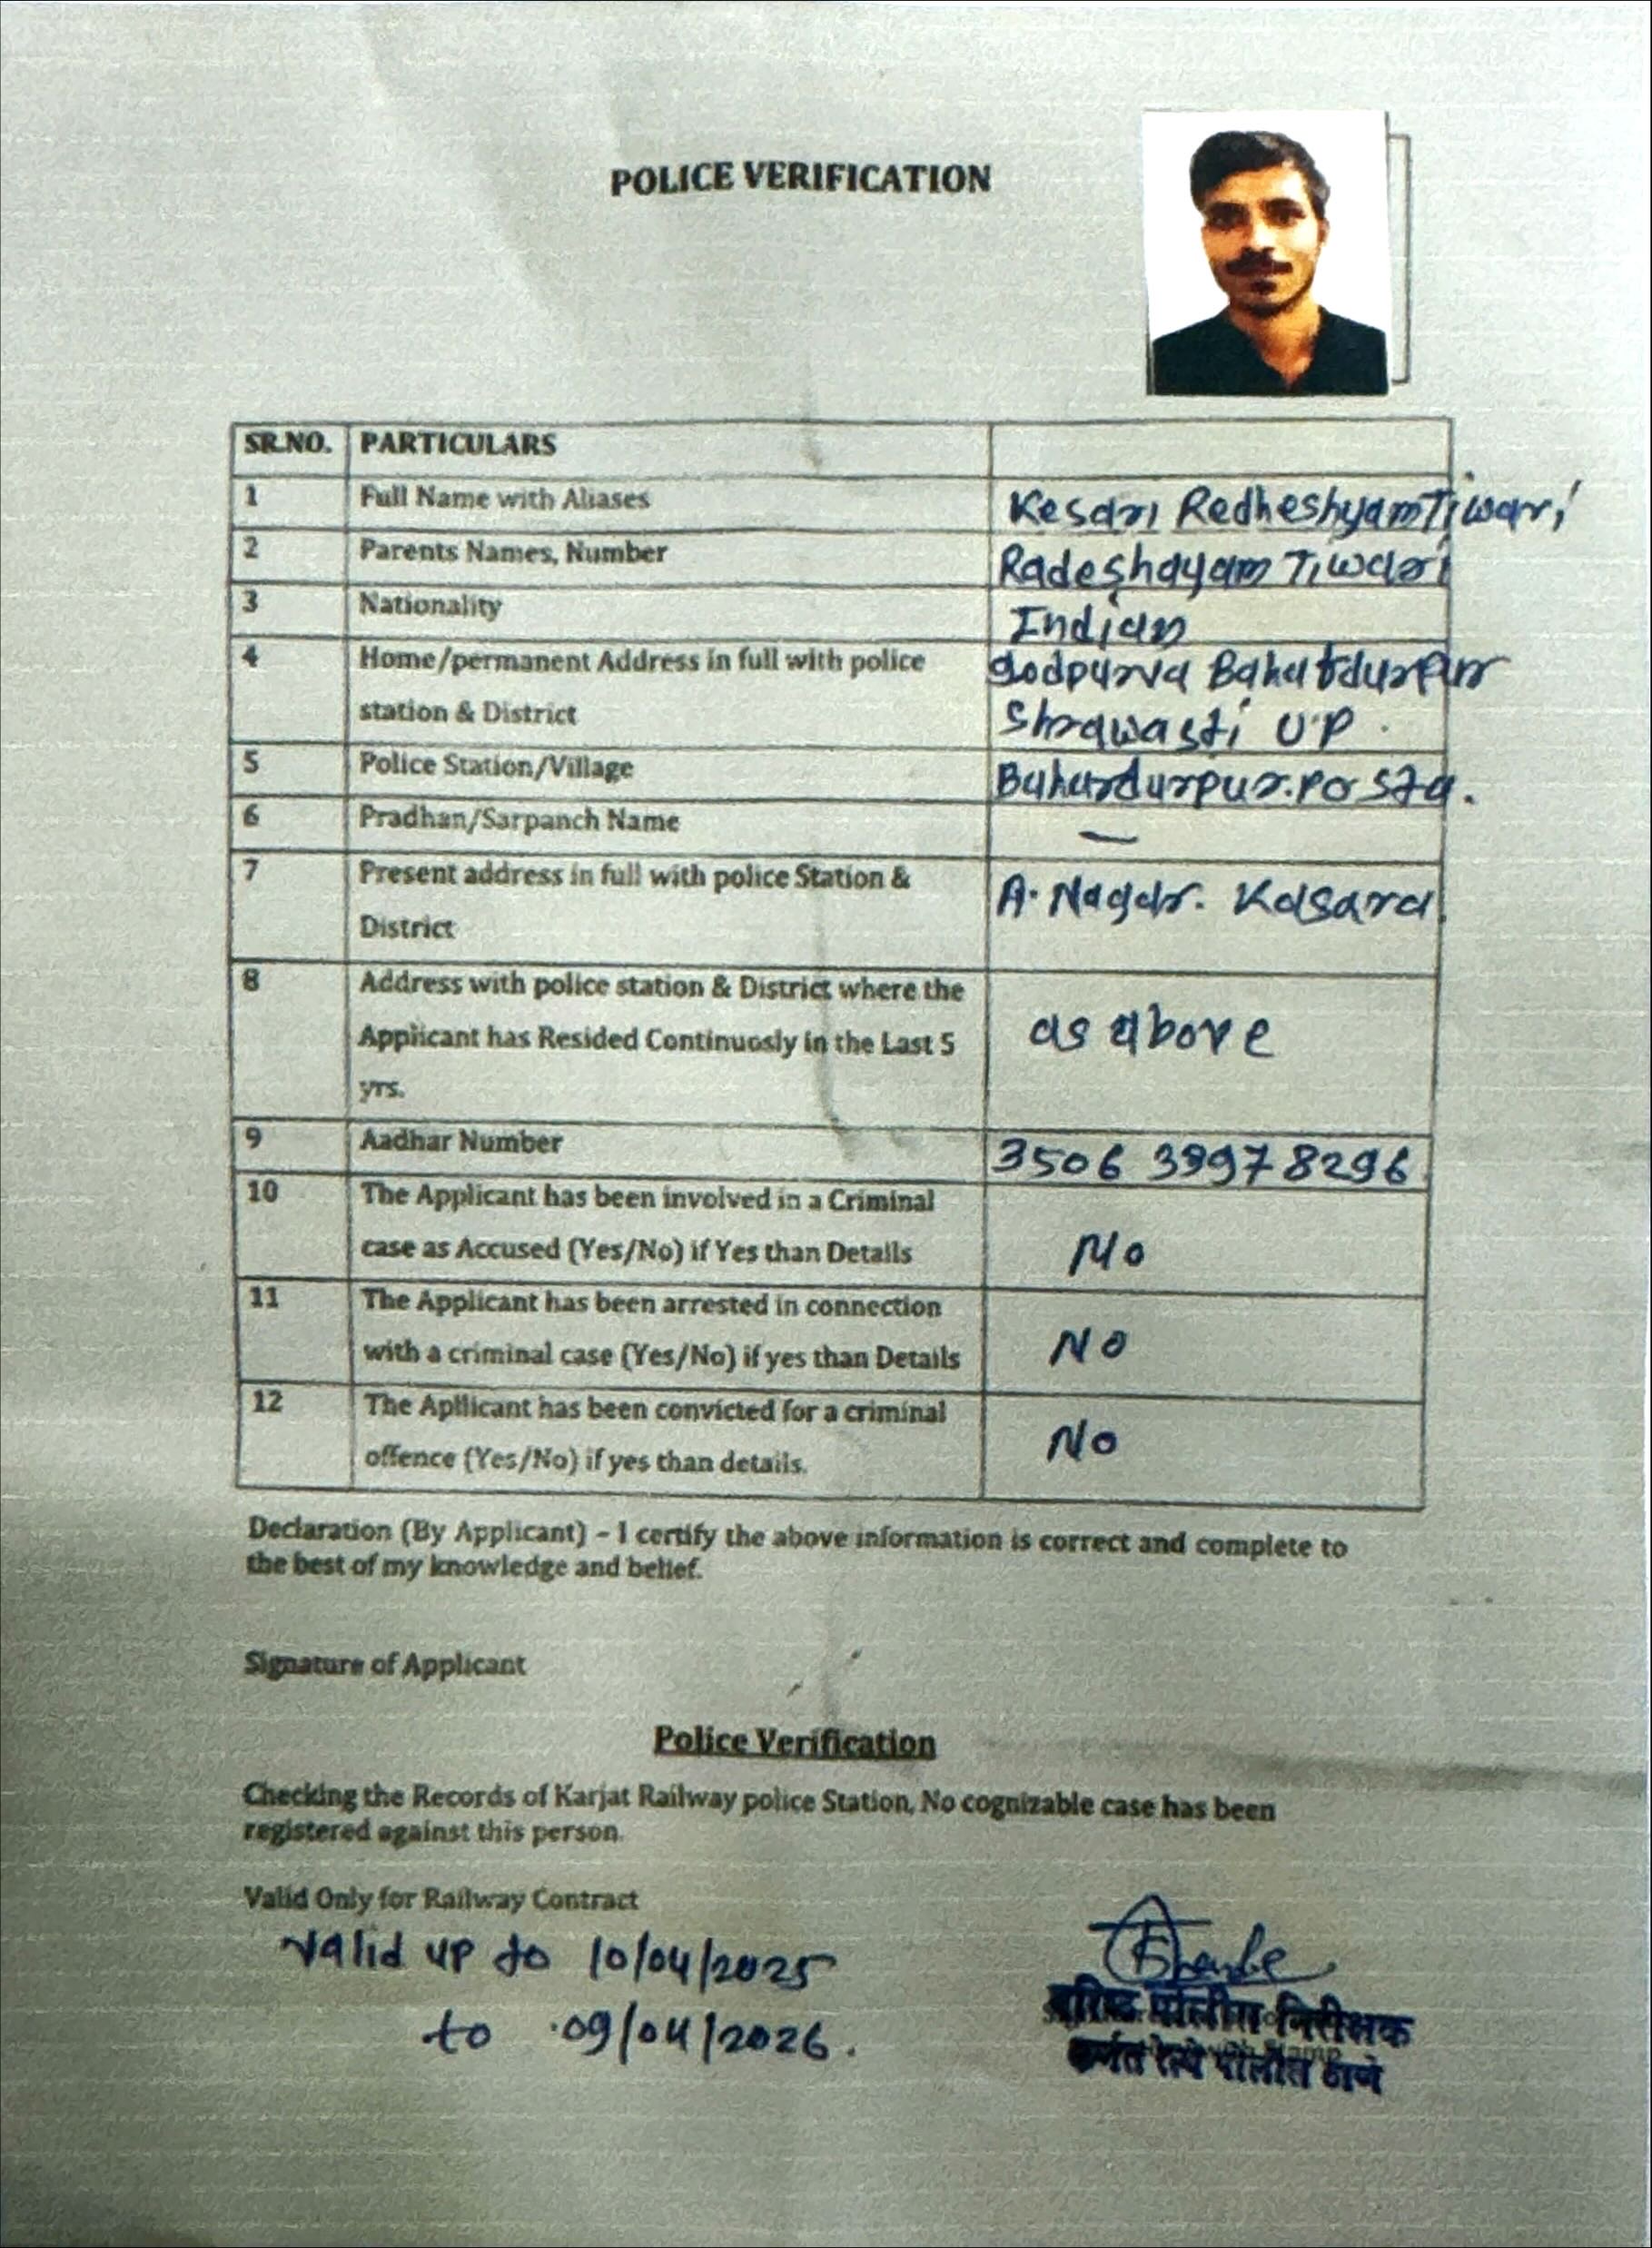 POLICE VERIFICATION
SR.NO. PARTICULARS
1 Full Name with Aliases Kesari Redheshyam Tiwari
2 Parents Names, Number Radeshayam Tiwari
3 Nationality Indian
4 Home/permanent Address in full with police
station & District
Shrawasti U.P.
5 Police Station/Village Bahardurpur. Po Sta.
6 Pradhan/Sarpanch Name —
7 Present address in full with police Station &
District
A. Nagar. Kasara
8 Address with police station & District where the
Applicant has Resided Continuosly in the Last 5
yrs.
as above
9 Aadhar Number 3506 3997 8296
10 The Applicant has been involved in a Criminal
case as Accused (Yes/No) if Yes than Details
No
11 The Applicant has been arrested in connection
with a criminal case (Yes/No) if yes than Details
No
12 The Apllicant has been convicted for a criminal
offence (Yes/No) if yes than details.
No
Declaration (By Applicant) – I certify the above information is correct and complete to
the best of my knowledge and belief.
Signature of Applicant
Police Verification
Checking the Records of Karjat Railway police Station, No cognizable case has been
registered against this person.
Valid Only for Railway Contract
valid up to 10/04/2025
to 09/04/2026.
वरिष्ठ पोलीस निरीक्षक
कर्जत रेल्वे पोलीस ठाणे